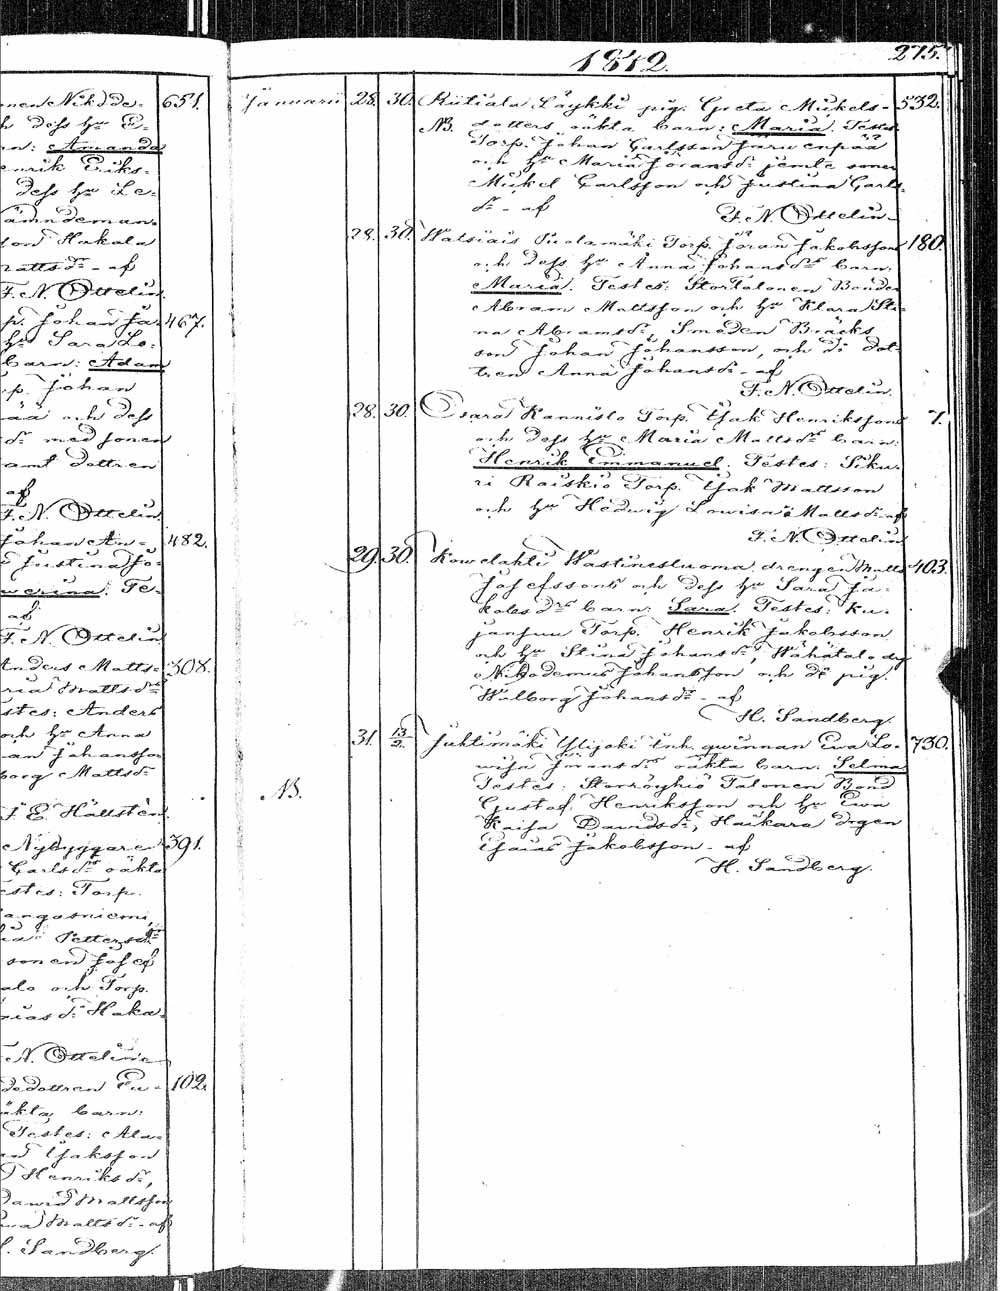 nen Nikode-
651.
h dess hu E-
rn: Amanda
enrik Eriks-
dess hu Le-
ämndeman
ford Hakala
mattsdr - af
F. N. Ottelin
p. Johan Ja-
467.
hu Sara Lo-
barn: Adam
rp. Johan
ää och dess
dr med sonen
samt dottren
af
F. N. Ottelin
Johan An-
482.
Justina Jo-
werina. Te-
af
F. N. Ottelin
Anders Matts-
308.
ria Mattsdr
stes: Anders
och hu Anna
an Johansson
borg Mattsdr
F. E. Hällstén
Nybyggare
391.
Carlsdr oäkta
estes: Torp.
angasniemi,
ia Pettersdr
sonen Josef
alo och Torp.
rias dr Haka-
F. N. Ottelin
dedottren Eu-
102.
äkta barn:
Testes: Ala-
and Isaksson
Henriksdr,
David Mattsson
wa Mattsdr - af
H. Sandberg.
1842.
275.
Januarii 28. 30. Riitiala Läykki pig. Greta Mickels- 532.
NB. dotters oäkta barn: Maria. Testes
Torp. Johan Carlsson Järvenpää
och hu Maria Göransdr jemte sonen
Mickel Carlsson och Justina Carls-
dr - af
F. N. Ottelin
28. 30. Watsiais Torp. Jöran Jakobsson 180.
och dess hu Anna Johansdrs barn
Maria. Testes: Stortalonen Bonden
Abram Mattsson och hu Klara Sti-
na Abramsdr, Smeden Bräcks
son Johan Johansson, och dr dot-
tren Anna Johansdr - af
F. N. Ottelin.
28. 30. Osara Kannisto Torp. Isak Henrikssons 7.
och dess hu Maria Mattsdrs barn:
Henrik Emmanuel. Testes: Siku-
ri Raiskio Torp. Isak Mattsson
och hu Hedwig Lowisa Mattsdr - af
F. N. Ottelin
29. 30. Kowelahti Wastinesluoma drengen Matts 403.
Josefssons och dess hu Sara Ja-
kobsdrs barn: Sara. Testes: Ku-
jansuu Torp. Henrik Jakobsson
och hu Stina Johansdr, Wähätalo drg
Nikodemus Johansson och dr pig.
Walborg Johansdr - af
H. Sandberg.
31. 13/2. Juhtimäki Ylijoki Inh. qwinnan Ewa Lo- 730.
wisa Göransdrs oäkta barn: Selma
NB. Testes: Storröyhiö Talonen Bond
Gustaf Henriksson och hu Ewa
Kaisa Davidsdr, Haikara drgen
Esaias Jakobsson - af
H. Sandberg.